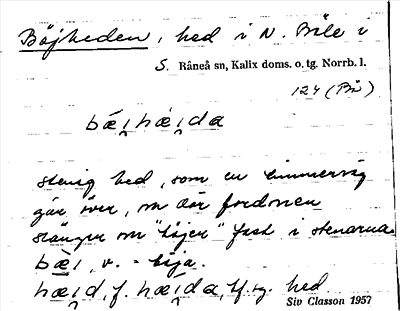 Böjheden, hed i N. Bäle i
S. Råneå sn, Kalix doms. o. tg. Norrb. l.
124 (Bä)
bǽi̯hæ̀i̯da
stenig hed, som en timmerväg
går över, om där fordonen
slänger om "böjer" fast i stenarna.
bæi, v. = böja.
hæi̯d, f. hǽi̯da, bf. sg. hed
Siv Classon 1957